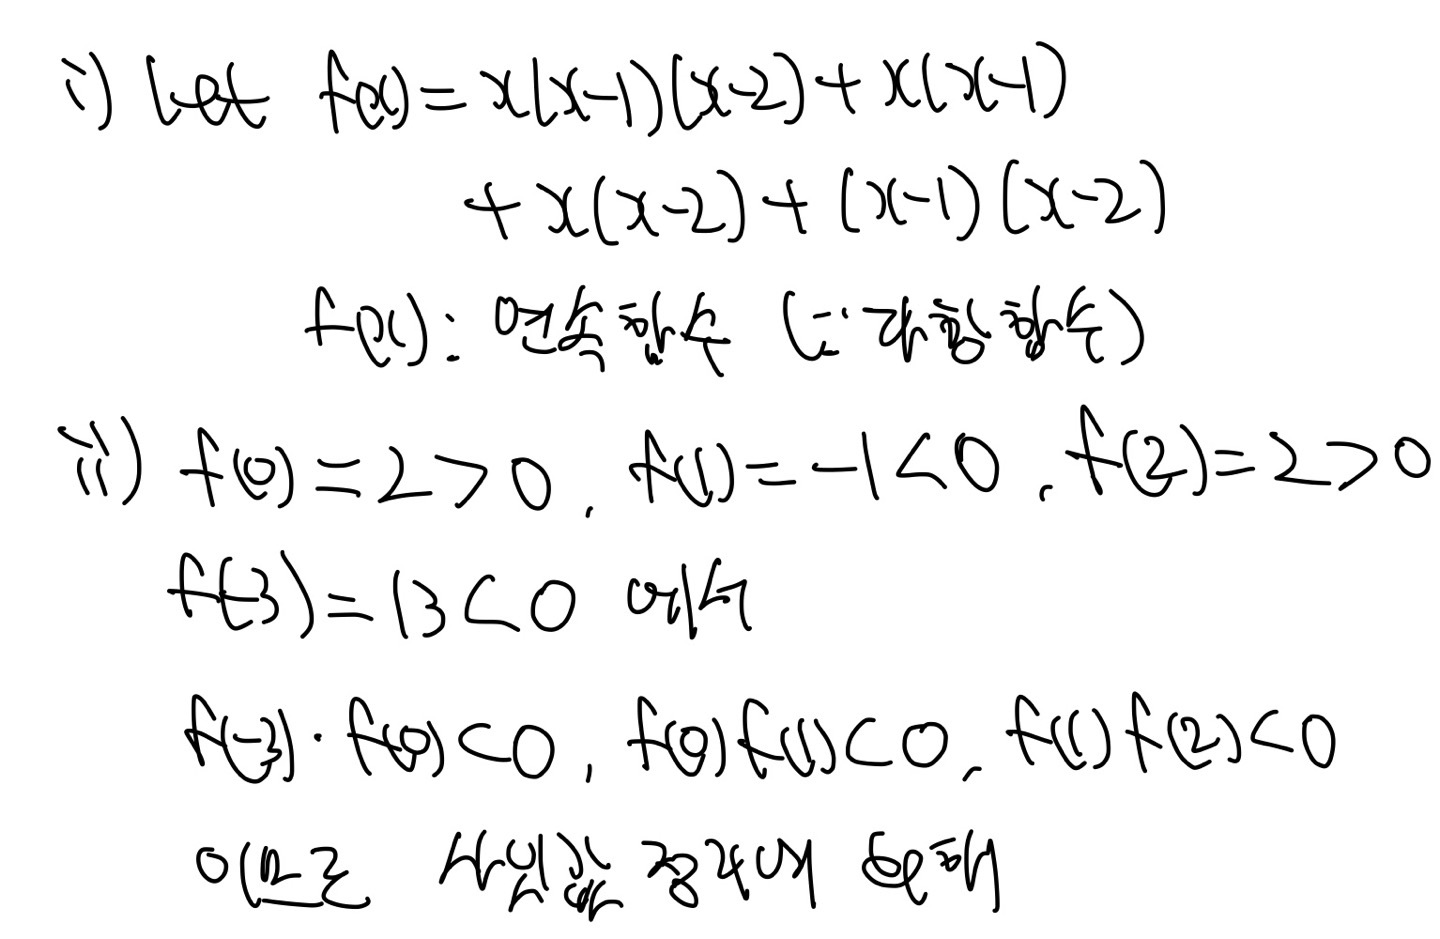 i) Let f(x)=x(x-1)(x-2)+x(x-1)
+x(x-2)+(x-1)(x-2)
f(x): 연속함수 (∵다항함수)
ii) f(0)=2>0, f(1)=-1<0, f(2)=2>0
f(-3)=13<0 에서
f(-3)·f(0)<0, f(0)f(1)<0, f(1)f(2)<0
이므로 사잇값 정리에 의해